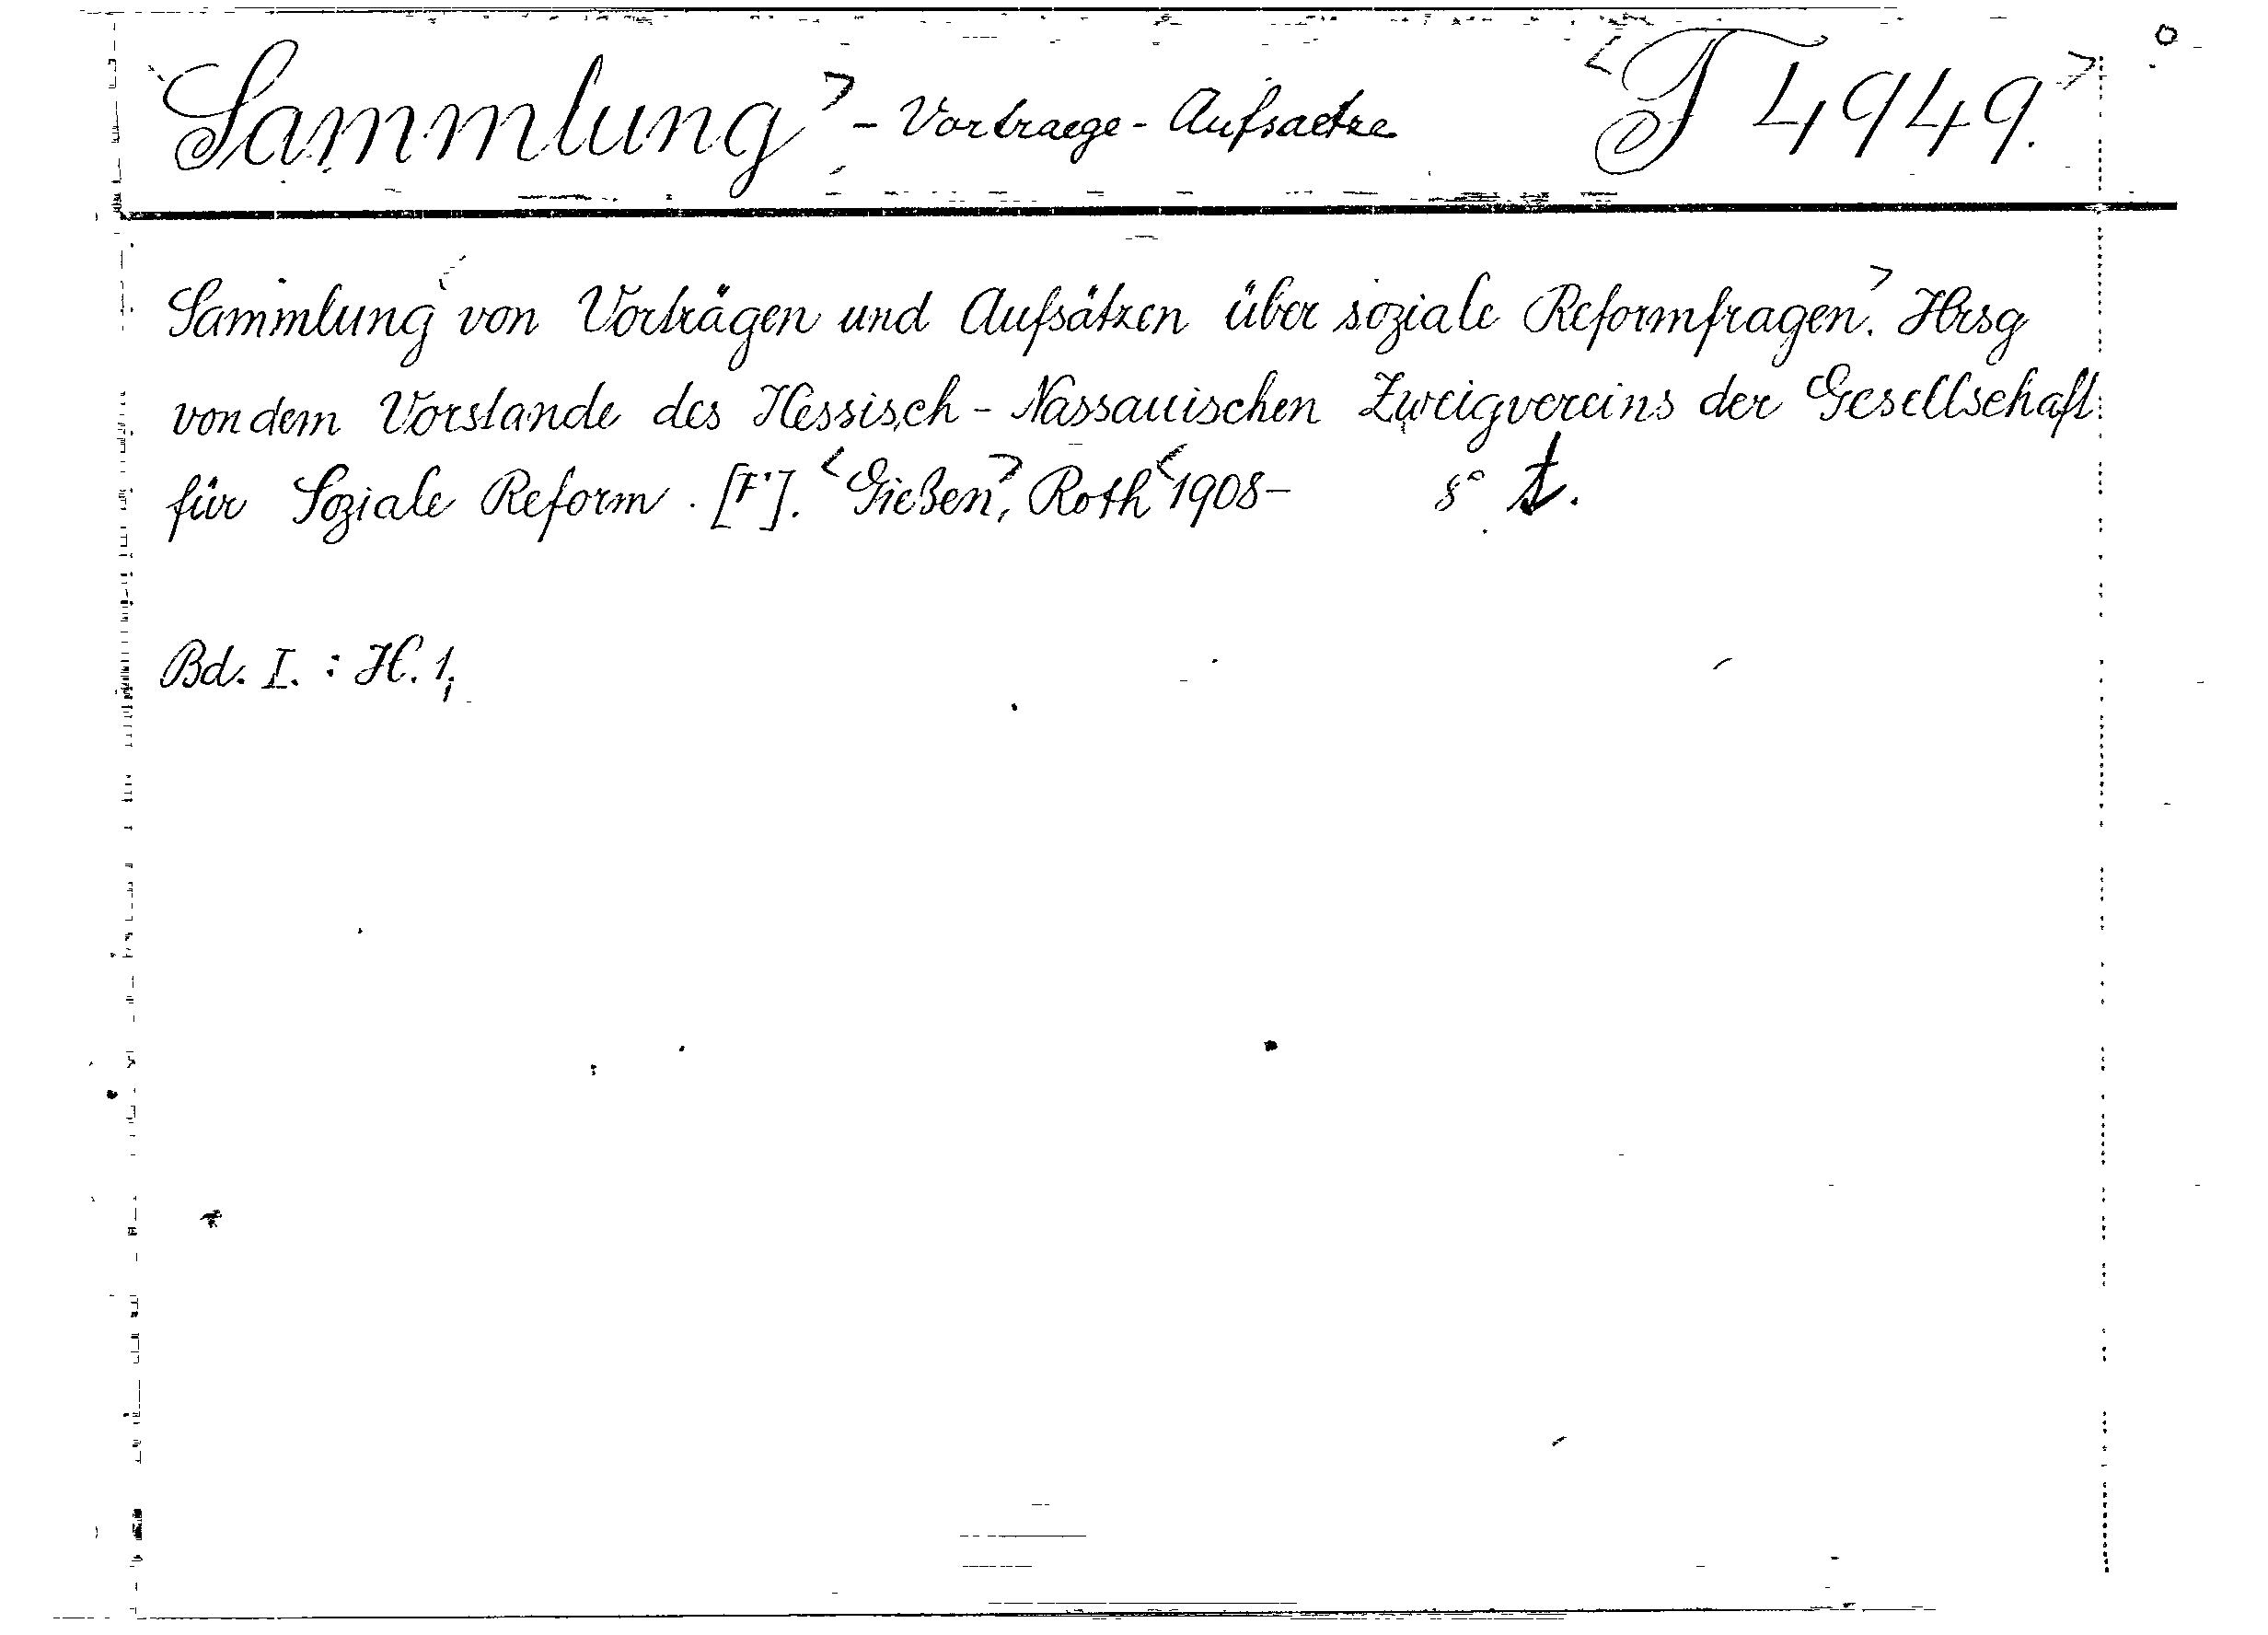 Sammlung> - Vortraege - Aufsaetze <T 4949.>
Sammlung <von Vorträgen und Aufsätzen über soziale Reformfragen>. Hrsg
von dem Vorstande des Hessisch-Nassauischen Zweigvereins der Gesellschaft
für Soziale Reform. [F']. <Gießen>, Roth <1908- 8° t.
Bd. I. : H. 1,